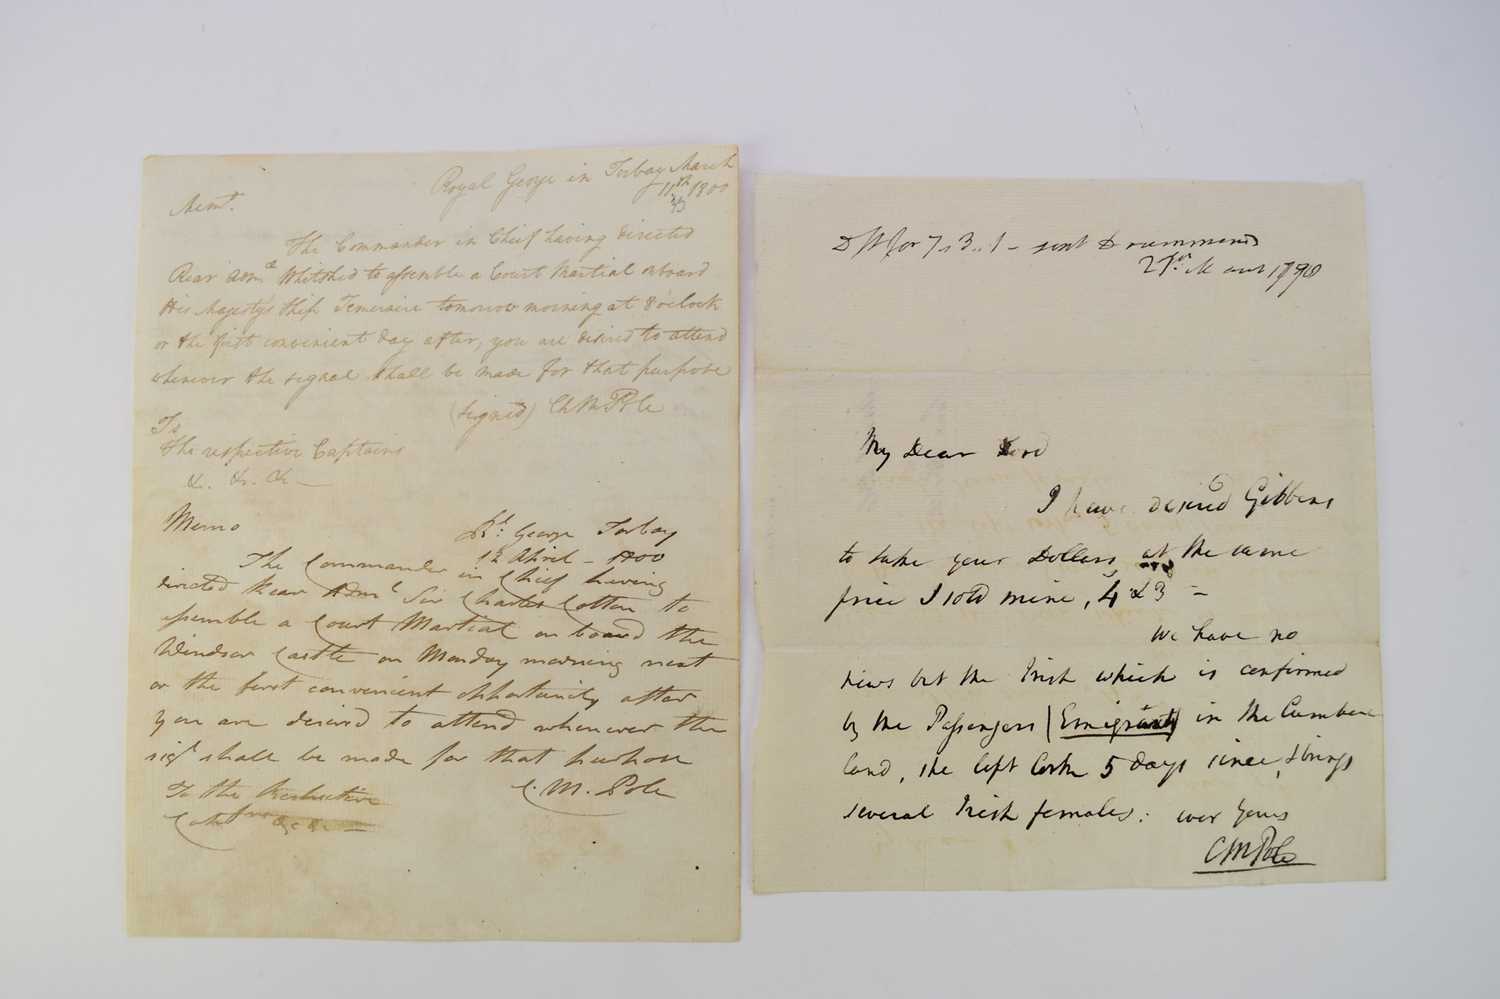 Royal George in Torbay March
11th 1800
Memo.
The Commander in Chief having directed
Rear Adml. Whitshed to assemble a Court Martial onboard
His Majesty's Ship Temeraire tomorrow morning at 8 o'clock
or the first convenient day after, you are desired to attend
whenever the signal shall be made for that purpose
(signed) Ch M Pole
To
The respective Captains
&. &c. &c —
Memo
Rl. George Torbay
12 April - 1800
The Commander in Chief having
directed Rear Adml Sir Charles Cotton to
assemble a Court Martial on board the
Windsor Castle on Monday morning next
or the first convenient opportunity after
you are desired to attend whenever the
sigl shall be made for that purpose
C. M. Pole
To the Respective
&c &c —
for 7 .. 3 .. 1 - sent Drummond
My Dear Lord
I have desired Gibbens
to take your Dollars, at the same
price I sold mine, 4 & 3 —
We have no
news but the Irish which is confirmed
by the Passengers (Emigrants) in the Cumber
land, she left Cork 5 days since, & brings
several Irish females: ever Yours
CM Pole